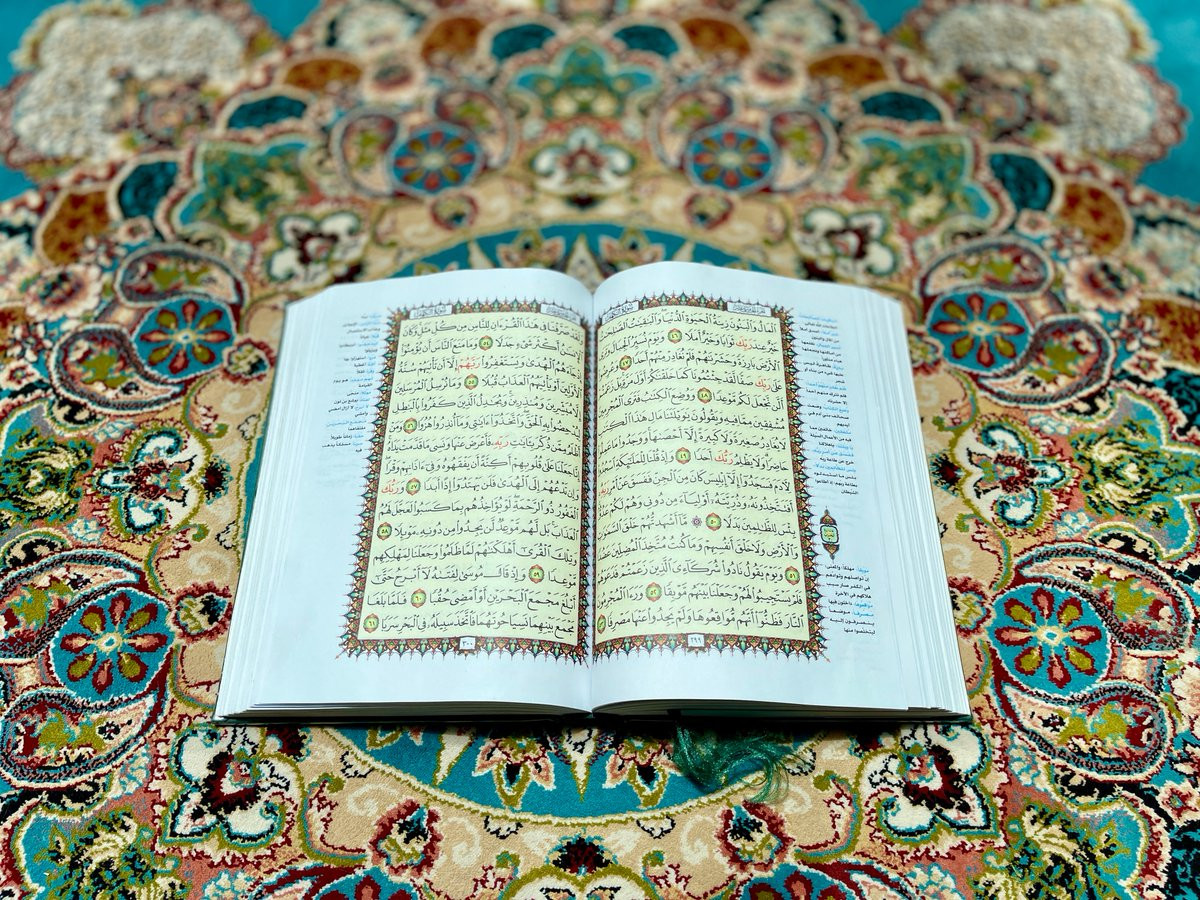 ٱلۡمَالُ وَٱلۡبَنُونَ زِينَةُ ٱلۡحَيَوٰةِ ٱلدُّنۡيَاۖ وَٱلۡبَٰقِيَٰتُ ٱلصَّٰلِحَٰتُ
خَيۡرٌ عِندَ رَبِّكَ ثَوَابٗا وَخَيۡرٌ أَمَلٗا ٤٦ وَيَوۡمَ نُسَيِّرُ ٱلۡجِبَالَ وَتَرَى
ٱلۡأَرۡضَ بَارِزَةٗ وَحَشَرۡنَٰهُمۡ فَلَمۡ نُغَادِرۡ مِنۡهُمۡ أَحَدٗا ٤٧ وَعُرِضُواْ
عَلَىٰ رَبِّكَ صَفّٗا لَّقَدۡ جِئۡتُمُونَا كَمَا خَلَقۡنَٰكُمۡ أَوَّلَ مَرَّةِۭۚ بَلۡ زَعَمۡتُمۡ
أَلَّن نَّجۡعَلَ لَكُم مَّوۡعِدٗا ٤٨ وَوُضِعَ ٱلۡكِتَٰبُ فَتَرَى ٱلۡمُجۡرِمِينَ
مُشۡفِقِينَ مِمَّا فِيهِ وَيَقُولُونَ يَٰوَيۡلَتَنَا مَالِ هَٰذَا ٱلۡكِتَٰبِ
لَا يُغَادِرُ صَغِيرَةٗ وَلَا كَبِيرَةً إِلَّآ أَحۡصَىٰهَاۚ وَوَجَدُواْ مَا عَمِلُواْ
حَاضِرٗاۗ وَلَا يَظۡلِمُ رَبُّكَ أَحَدٗا ٤٩ وَإِذۡ قُلۡنَا لِلۡمَلَٰٓئِكَةِ ٱسۡجُدُواْ
لِأٓدَمَ فَسَجَدُوٓاْ إِلَّآ إِبۡلِيسَ كَانَ مِنَ ٱلۡجِنِّ فَفَسَقَ عَنۡ أَمۡرِ رَبِّهِۦٓۗ
أَفَتَتَّخِذُونَهُۥ وَذُرِّيَّتَهُۥٓ أَوۡلِيَآءَ مِن دُونِي وَهُمۡ لَكُمۡ عَدُوُّۢۚ
بِئۡسَ لِلظَّٰلِمِينَ بَدَلٗا ٥٠ ۞ مَّآ أَشۡهَدتُّهُمۡ خَلۡقَ ٱلسَّمَٰوَٰتِ
وَٱلۡأَرۡضِ وَلَا خَلۡقَ أَنفُسِهِمۡ وَمَا كُنتُ مُتَّخِذَ ٱلۡمُضِلِّينَ عَضُدٗا
٥١ وَيَوۡمَ يَقُولُ نَادُواْ شُرَكَآءِيَ ٱلَّذِينَ زَعَمۡتُمۡ فَدَعَوۡهُمۡ
فَلَمۡ يَسۡتَجِيبُواْ لَهُمۡ وَجَعَلۡنَا بَيۡنَهُم مَّوۡبِقٗا ٥٢ وَرَءَا ٱلۡمُجۡرِمُونَ
ٱلنَّارَ فَظَنُّوٓاْ أَنَّهُم مُّوَاقِعُوهَا وَلَمۡ يَجِدُواْ عَنۡهَا مَصۡرِفٗا ٥٣
٢٩٩
وَلَقَدۡ صَرَّفۡنَا فِي هَٰذَا ٱلۡقُرۡءَانِ لِلنَّاسِ مِن كُلِّ مَثَلٖۚ وَكَانَ
ٱلۡإِنسَٰنُ أَكۡثَرَ شَيۡءٖ جَدَلٗا ٥٤ وَمَا مَنَعَ ٱلنَّاسَ أَن يُؤۡمِنُوٓاْ
إِذۡ جَآءَهُمُ ٱلۡهُدَىٰ وَيَسۡتَغۡفِرُواْ رَبَّهُمۡ إِلَّآ أَن تَأۡتِيَهُمۡ سُنَّةُ
ٱلۡأَوَّلِينَ أَوۡ يَأۡتِيَهُمُ ٱلۡعَذَابُ قُبُلٗا ٥٥ وَمَا نُرۡسِلُ ٱلۡمُرۡسَلِينَ
إِلَّا مُبَشِّرِينَ وَمُنذِرِينَۚ وَيُجَٰدِلُ ٱلَّذِينَ كَفَرُواْ بِٱلۡبَٰطِلِ
لِيُدۡحِضُواْ بِهِ ٱلۡحَقَّۖ وَٱتَّخَذُوٓاْ ءَايَٰتِي وَمَآ أُنذِرُواْ هُزُوٗا ٥٦ وَمَنۡ
أَظۡلَمُ مِمَّن ذُكِّرَ بِـَٔايَٰتِ رَبِّهِۦ فَأَعۡرَضَ عَنۡهَا وَنَسِيَ مَا قَدَّمَتۡ يَدَاهُۚ
إِنَّا جَعَلۡنَا عَلَىٰ قُلُوبِهِمۡ أَكِنَّةً أَن يَفۡقَهُوهُ وَفِيٓ ءَاذَانِهِمۡ وَقۡرٗاۖ
وَإِن تَدۡعُهُمۡ إِلَى ٱلۡهُدَىٰ فَلَن يَهۡتَدُوٓاْ إِذًا أَبَدٗا ٥٧ وَرَبُّكَ
ٱلۡغَفُورُ ذُو ٱلرَّحۡمَةِۖ لَوۡ يُؤَاخِذُهُم بِمَا كَسَبُواْ لَعَجَّلَ لَهُمُ
ٱلۡعَذَابَۚ بَل لَّهُم مَّوۡعِدٞ لَّن يَجِدُواْ مِن دُونِهِۦ مَوۡئِلٗا ٥٨
وَتِلۡكَ ٱلۡقُرَىٰٓ أَهۡلَكۡنَٰهُمۡ لَمَّا ظَلَمُواْ وَجَعَلۡنَا لِمَهۡلِكِهِم
مَّوۡعِدٗا ٥٩ وَإِذۡ قَالَ مُوسَىٰ لِفَتَىٰهُ لَآ أَبۡرَحُ حَتَّىٰٓ
أَبۡلُغَ مَجۡمَعَ ٱلۡبَحۡرَيۡنِ أَوۡ أَمۡضِيَ حُقُبٗا ٦٠ فَلَمَّا بَلَغَا
مَجۡمَعَ بَيۡنِهِمَا نَسِيَا حُوتَهُمَا فَٱتَّخَذَ سَبِيلَهُۥ فِي ٱلۡبَحۡرِ سَرَبٗا ٦١
٣٠٠